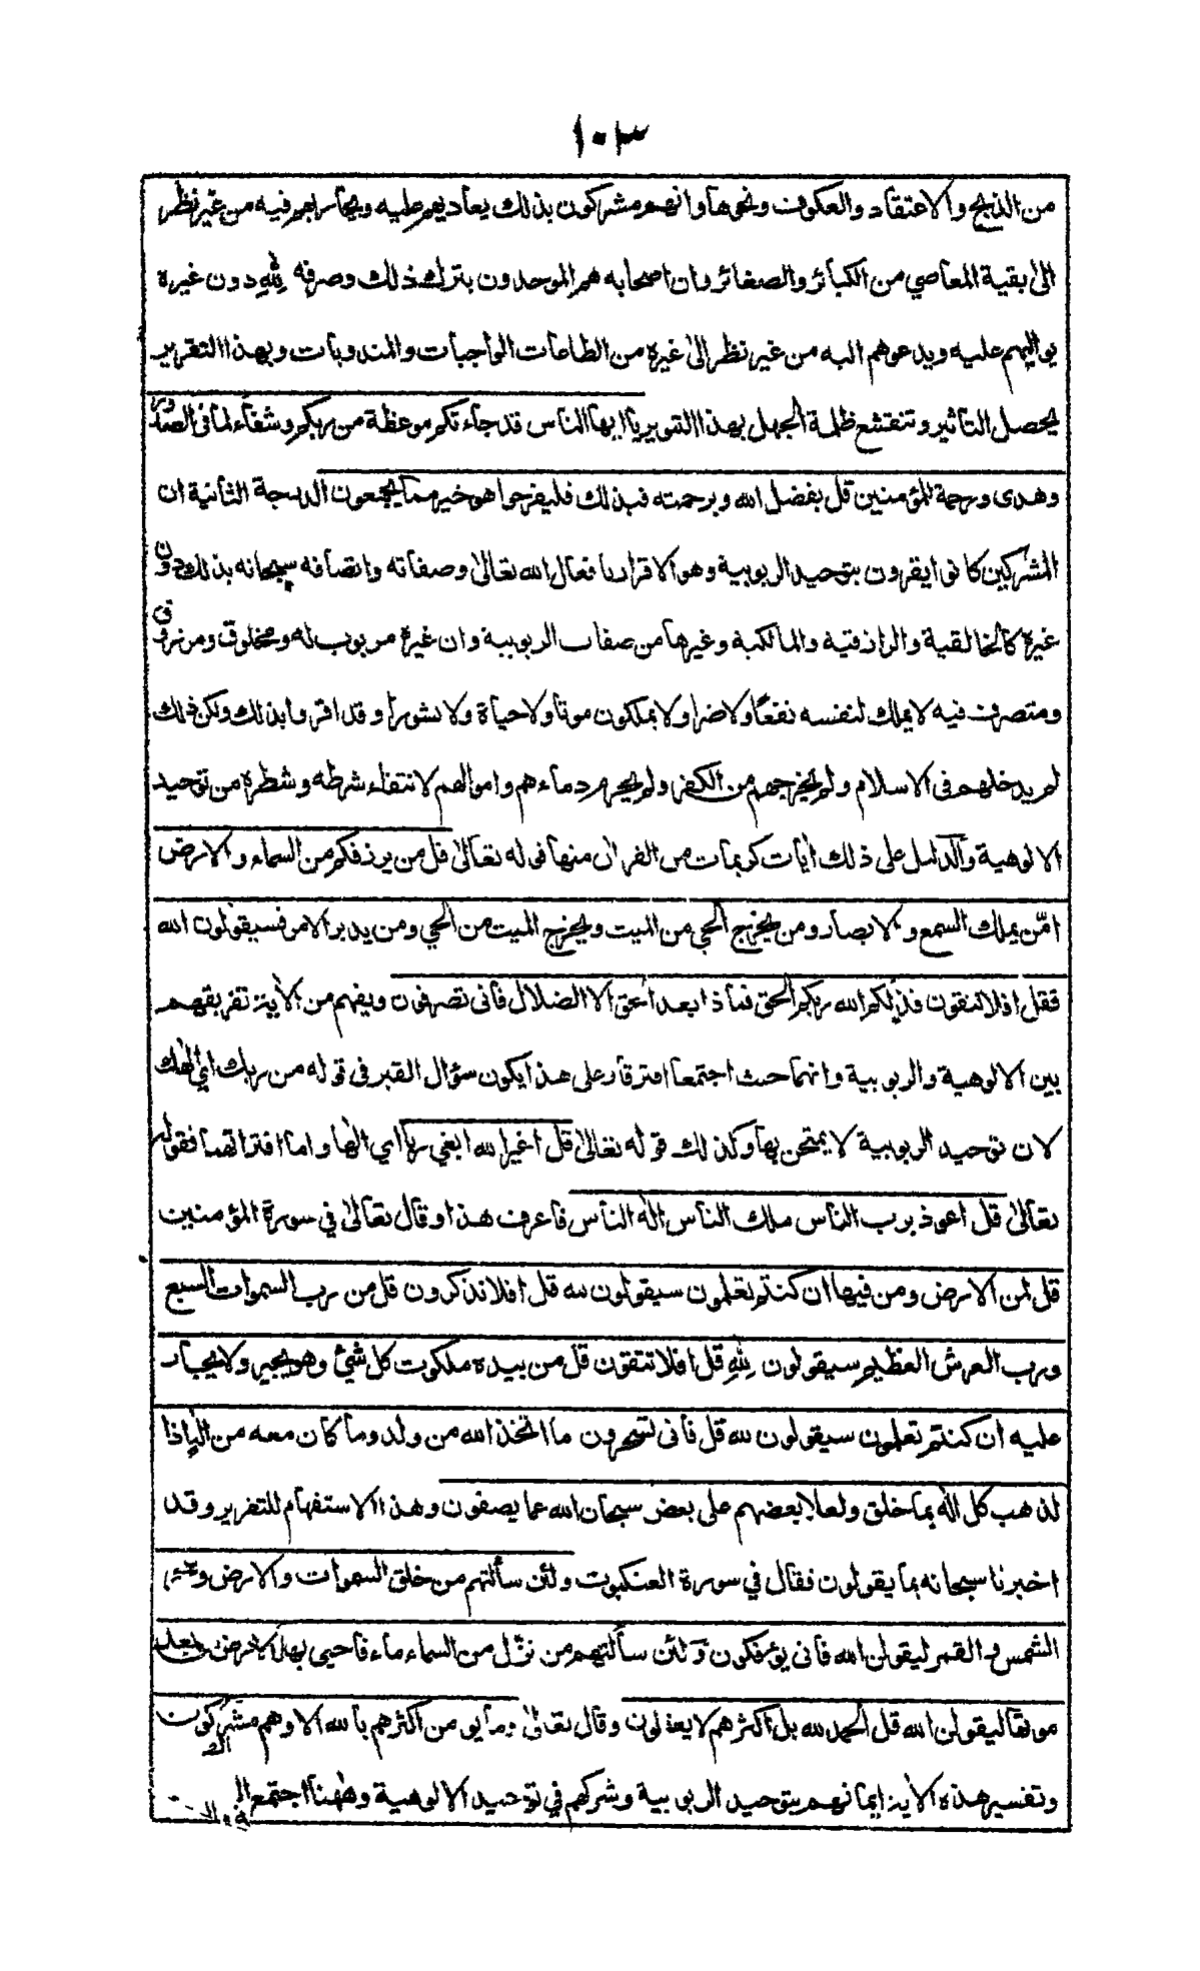 ١٠٣
من الذبح والاعتقاد والعكوف ونحوها وانهم مشركون بذلك يعاديهم عليه ويحاربهم فيه من غير نظر
الى بقية المعاصي من الكبائر والصغائر وان اصحابه هم الموحدون بترك ذلك وصرفه لله دون غيره
يواليهم عليه ويدعوهم اليه من غير نظر الى غيره من الطاعات الواجبات والمندوبات وبهذا التقرير
يحصل التأثير وتنقشع ظلمة الجهل بهذا التنوير يا ايها الناس قد جاءتكم موعظة من ربكم وشفاء لما فى الصدور
وهدى ورحمة للمؤمنين قل بفضل الله وبرحمته فبذلك فليفرحوا هو خير مما يجمعون الدرجة الثانية ان
المشركين كانوا يقرون بتوحيد الربوبية وهو الاقرار بافعال الله تعالى وصفاته واتصافه سبحانه بذلك دون
غيره كالخالقية والرازقية والمالكية وغيرها من صفات الربوبية وان غيره مربوب له ومخلوق ومرزوق
ومتصرف فيه لا يملك لنفسه نفعا ولا ضرا ولا يملكون موتا ولا حياة ولا نشورا وقد اقروا بذلك ولكن ذلك
لم يدخلهم فى الاسلام ولم يخرجهم من الكفر ولم يحرم دماءهم واموالهم لانتفاء شرطه وشطره من توحيد
الالوهية والدليل على ذلك أيات كريمات من القرآن منها قوله تعالى قل من يرزقكم من السماء والارض
امّن يملك السمع والابصار ومن يخرج الحي من الميت ويخرج الميت من الحي ومن يدبر الامر فسيقولون الله
فقل افلا تتقون فذلكم الله ربكم الحق فماذا بعد الحق الا الضلال فانى تصرفون ويفهم من الأية تفريقهم
بين الالوهية والربوبية وانهما حيث اجتمعا افترقا وعلى هذا يكون سؤال القبر فى قوله من ربك اي الهك
لان توحيد الربوبية لا يمتحن بها وكذلك قوله تعالى قل اغير الله ابغي ربا اي الها واما افتراقهما فقوله
تعالى قل اعوذ برب الناس ملك الناس اله الناس فاعرف هذا وقال تعالى في سورة المؤمنين
قل لمن الارض ومن فيها ان كنتم تعلمون سيقولون لله قل افلا تذكرون قل من رب السموات السبع
ورب العرش العظيم سيقولون لله قل افلا تتقون قل من بيده ملكوت كل شئ وهو يجير ولا يجار
عليه ان كنتم تعلمون سيقولون لله قل فانى تسحرون ما اتخذ الله من ولد وما كان معه من اله اذا
لذهب كل اله بما خلق ولعلا بعضهم على بعض سبحان الله عما يصفون وهذا الاستفهام للتقرير وقد
اخبرنا سبحانه بما يقولون فقال في سورة العنكبوت ولئن سألتهم من خلق السموات والارض وسخر
الشمس والقمر ليقولن الله فانى يؤفكون ولئن سألتهم من نزّل من السماء ماء فاحيى بها الارض بعد
موتها ليقولن الله قل الحمد لله بل اكثرهم لا يعقلون وقال تعالى وما يؤمن اكثرهم بالله الا وهم مشركون
وتفسير هذه الأية ايمانهم بتوحيد الربوبية وشركهم في توحيد الالوهية وههنا اجتمع